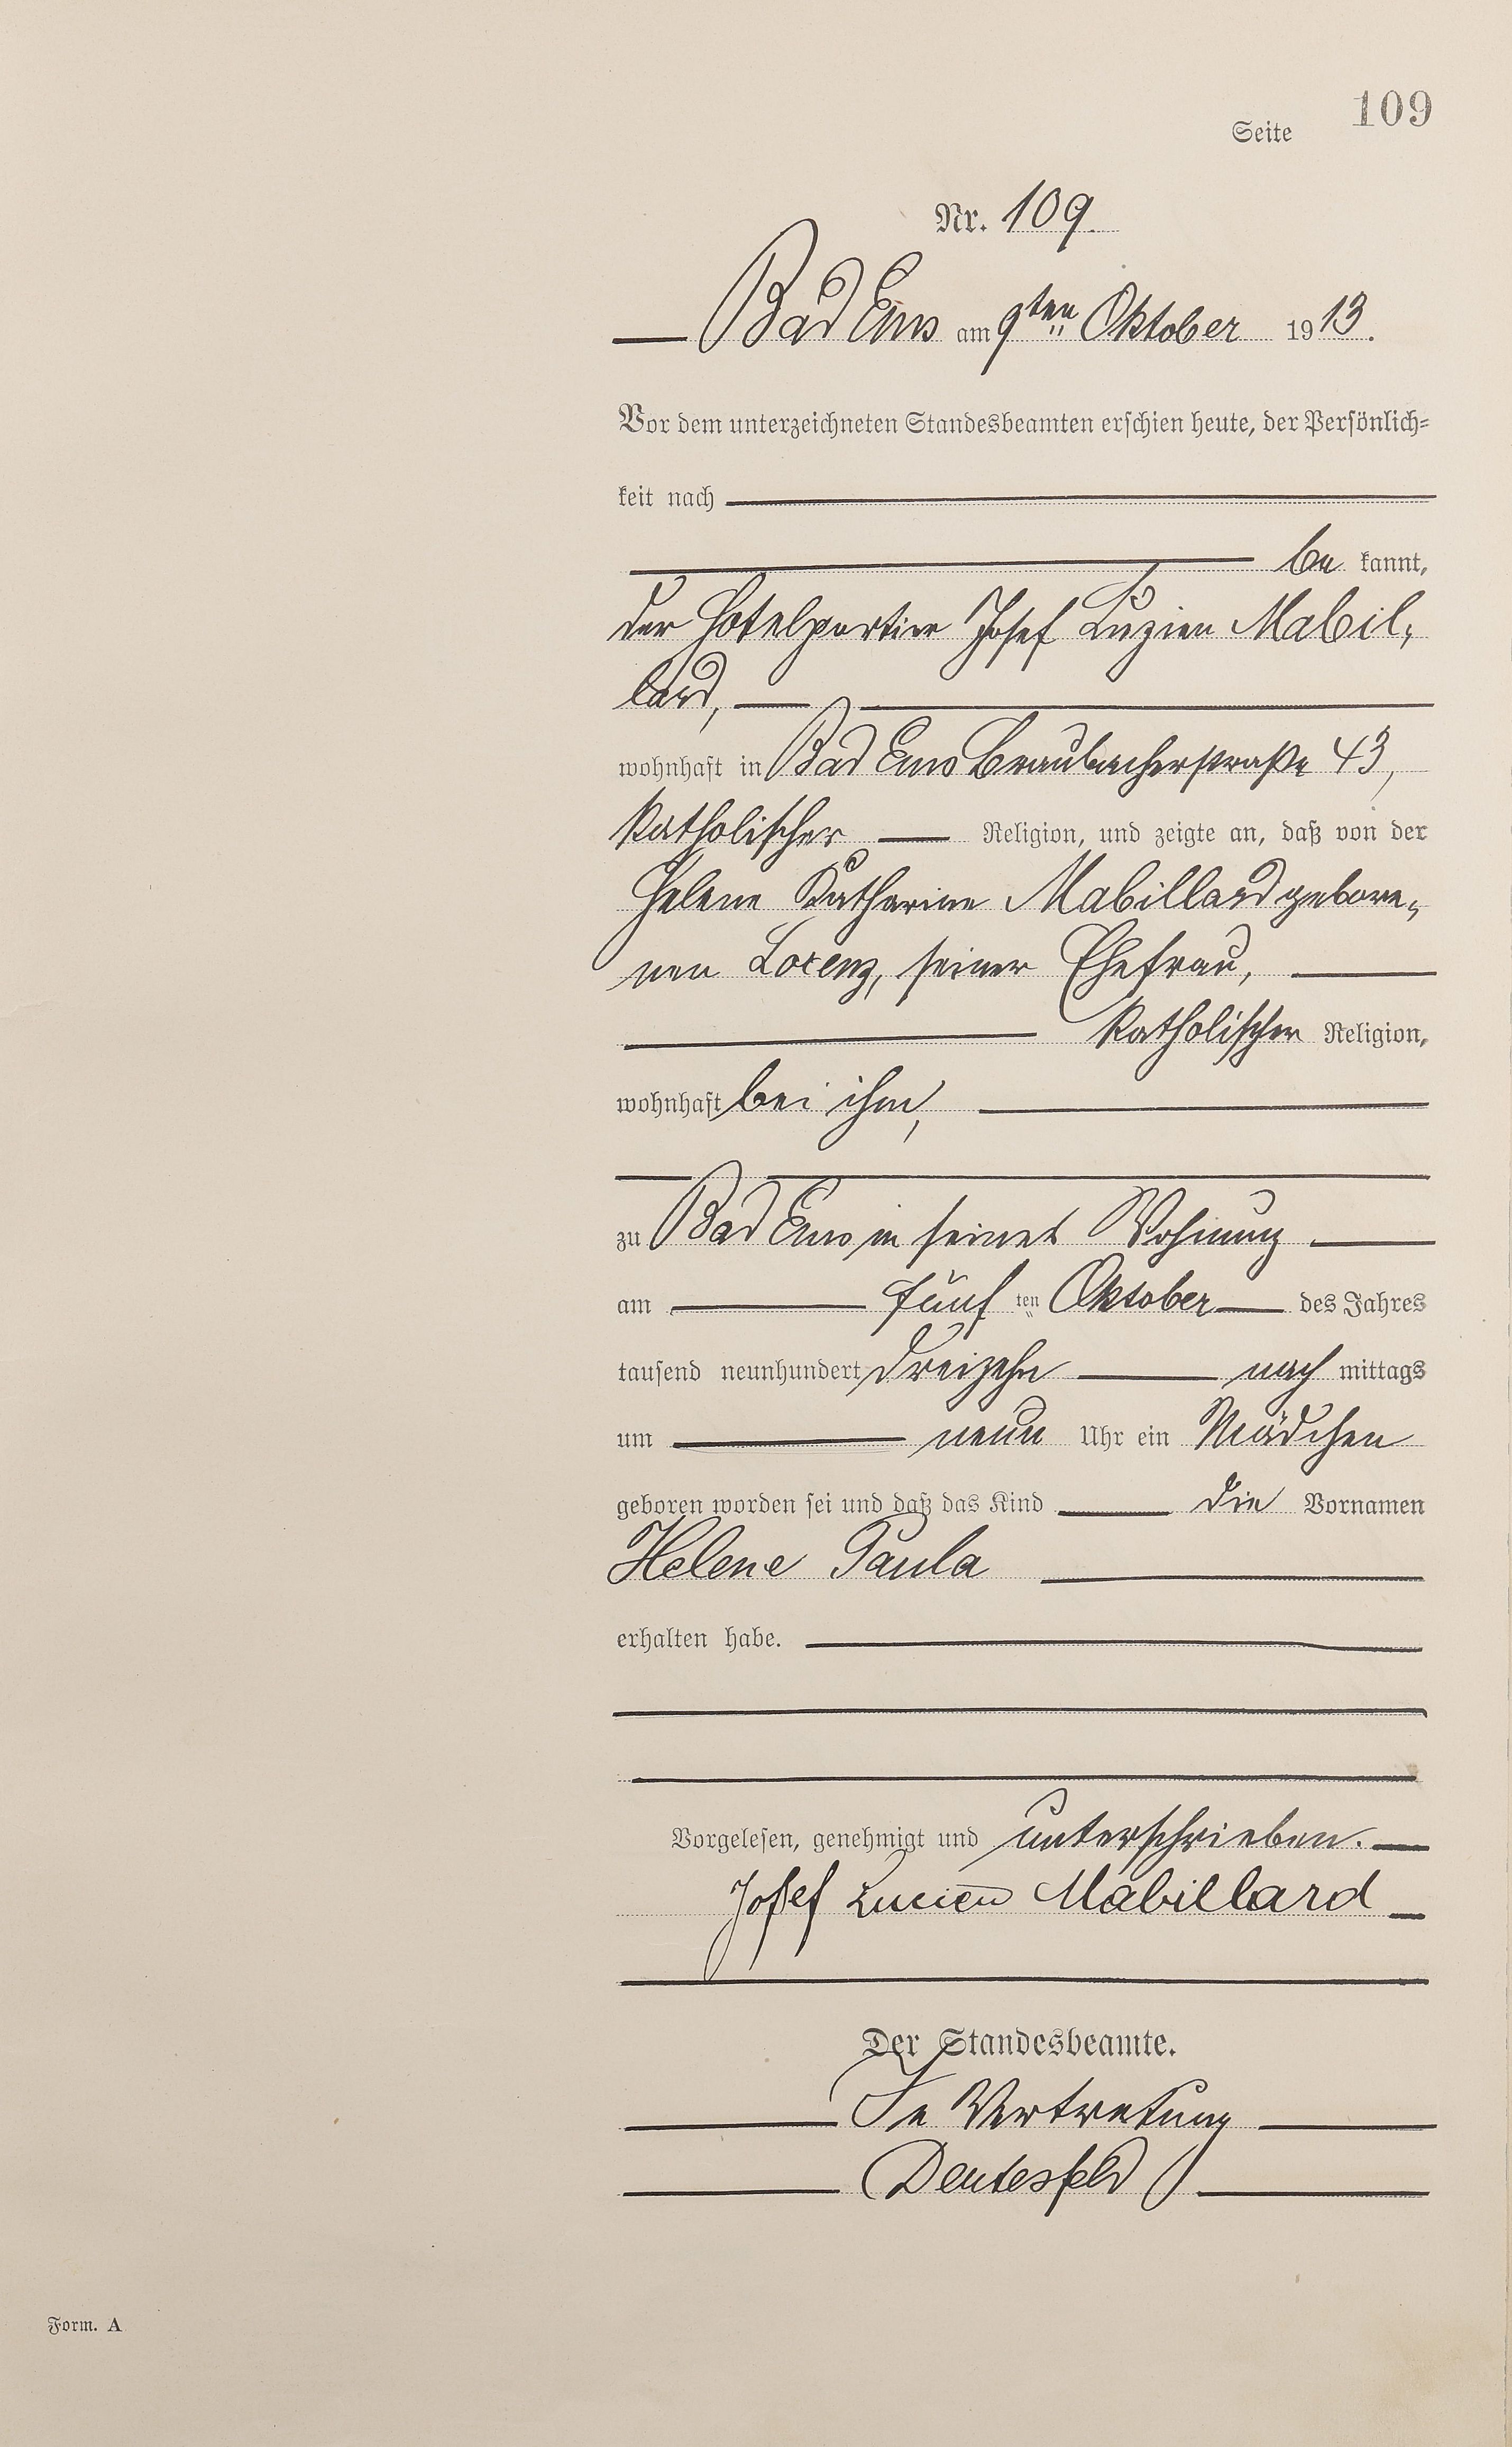 Seite 109
Nr. 109.
Bad Ems am 9ten Oktober 1913.
Vor dem unterzeichneten Standesbeamten erschien heute, der Persönlich=
keit nach
be kannt,
der Hotelportier Josef Luzien Mabil-
lard,
wohnhaft in Bad Ems Braubacherstraße 43,
katholischer Religion, und zeigte an, daß von der
Helene Katharine Mabillard gebore-
nen Lorenz, seiner Ehefrau,
katholischer Religion,
wohnhaft bei ihm,
zu Bad Ems in seiner Wohnung
am fünf ten Oktober des Jahres
tausend neunhundert dreizehn nach mittags
um neun Uhr ein Mädchen
geboren worden sei und daß das Kind die Vornamen
Helene Paula
erhalten habe.
Vorgelesen, genehmigt und unterschrieben.
Josef Lucien Mabillard
Der Standesbeamte.
In Vertretung
Deutesfeld
Form. A